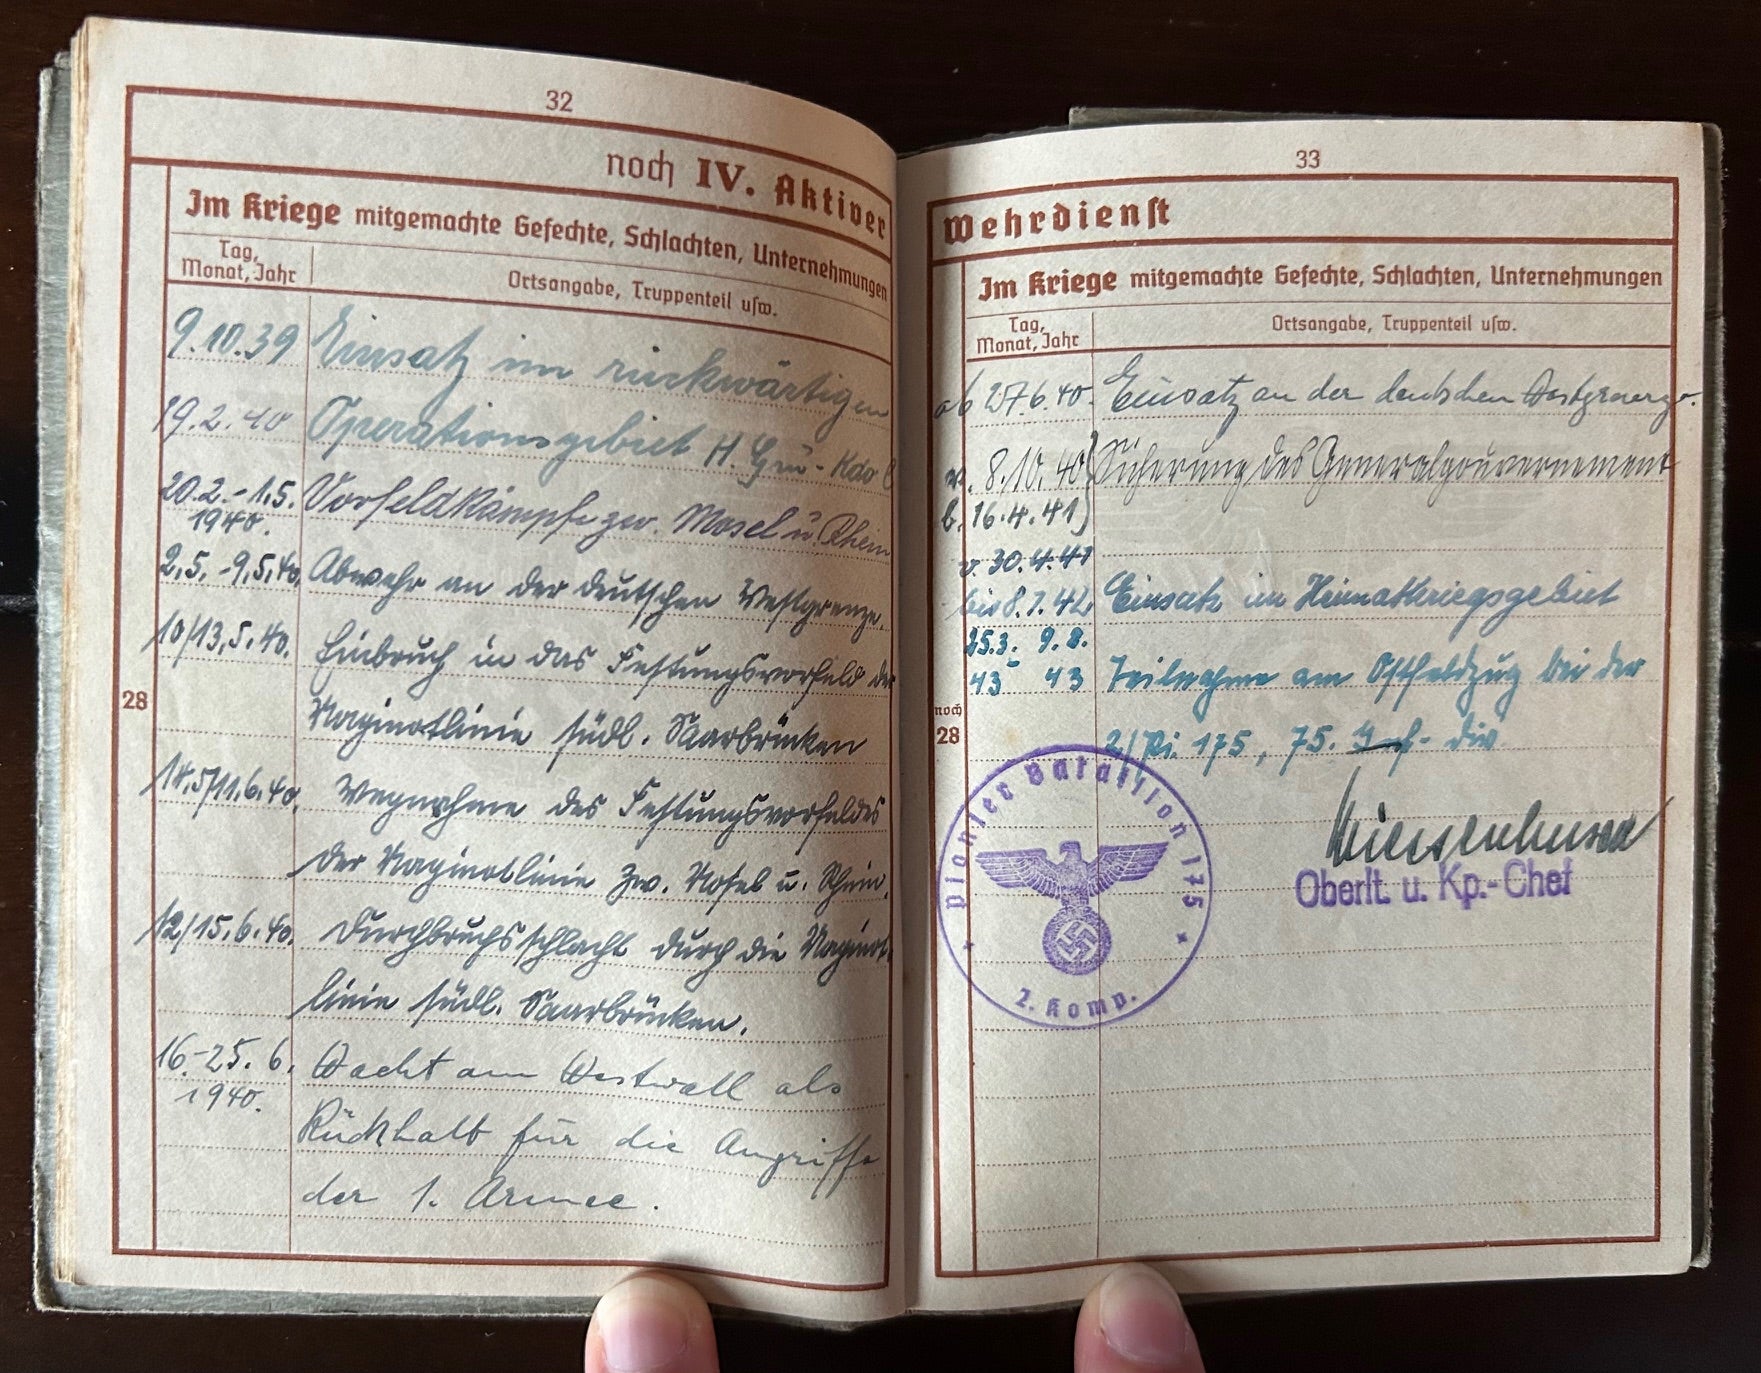 32
noch IV. Aktiver
Im Kriege mitgemachte Gefechte, Schlachten, Unternehmungen
Tag, Monat, Jahr
Ortsangabe, Truppenteil usw.
9.10.39 Einsatz im rückwärtigen
19.2.40 Operationsgebiet H. Gru-Kdo C
20.2.-1.5. Vorfeldkämpfe zw. Mosel u. Rhein
1940.
2.5.-9.5.40. Abwehr an der deutschen Westgrenze.
10/13.5.40. Einbruch in das Festungsvorfeld der
Maginotlinie südl. Saarbrücken
28
14.5/11.6.40. Wegnahme des Festungsvorfeldes
der Maginotlinie zw. Mosel u. Rhein.
12/15.6.40. Durchbruchsschlacht durch die Maginot-
linie südl. Saarbrücken.
16.-25.6. Wacht am Westwall als
1940.
Rückhalt für die Angriffe
der 1. Armee.
33
Wehrdienst
Im Kriege mitgemachte Gefechte, Schlachten, Unternehmungen
Tag, Monat, Jahr
Ortsangabe, Truppenteil usw.
ab 27.6.40. Einsatz an der deutschen
v. 8.10.40 Sicherung des Generalgouvernement
b. 16.4.41
v. 30.4.41
bis 8.7.42, Einsatz im Heimatkriegsgebiet
25.3. - 9.8.
43 43 Teilnahme am Ostfeldzug bei der
noch
28
2/Pi. 175, 75. Inf.-Div
Pionier Bataillon 175
2. Komp.
Oberlt. u. Kp.-Chef